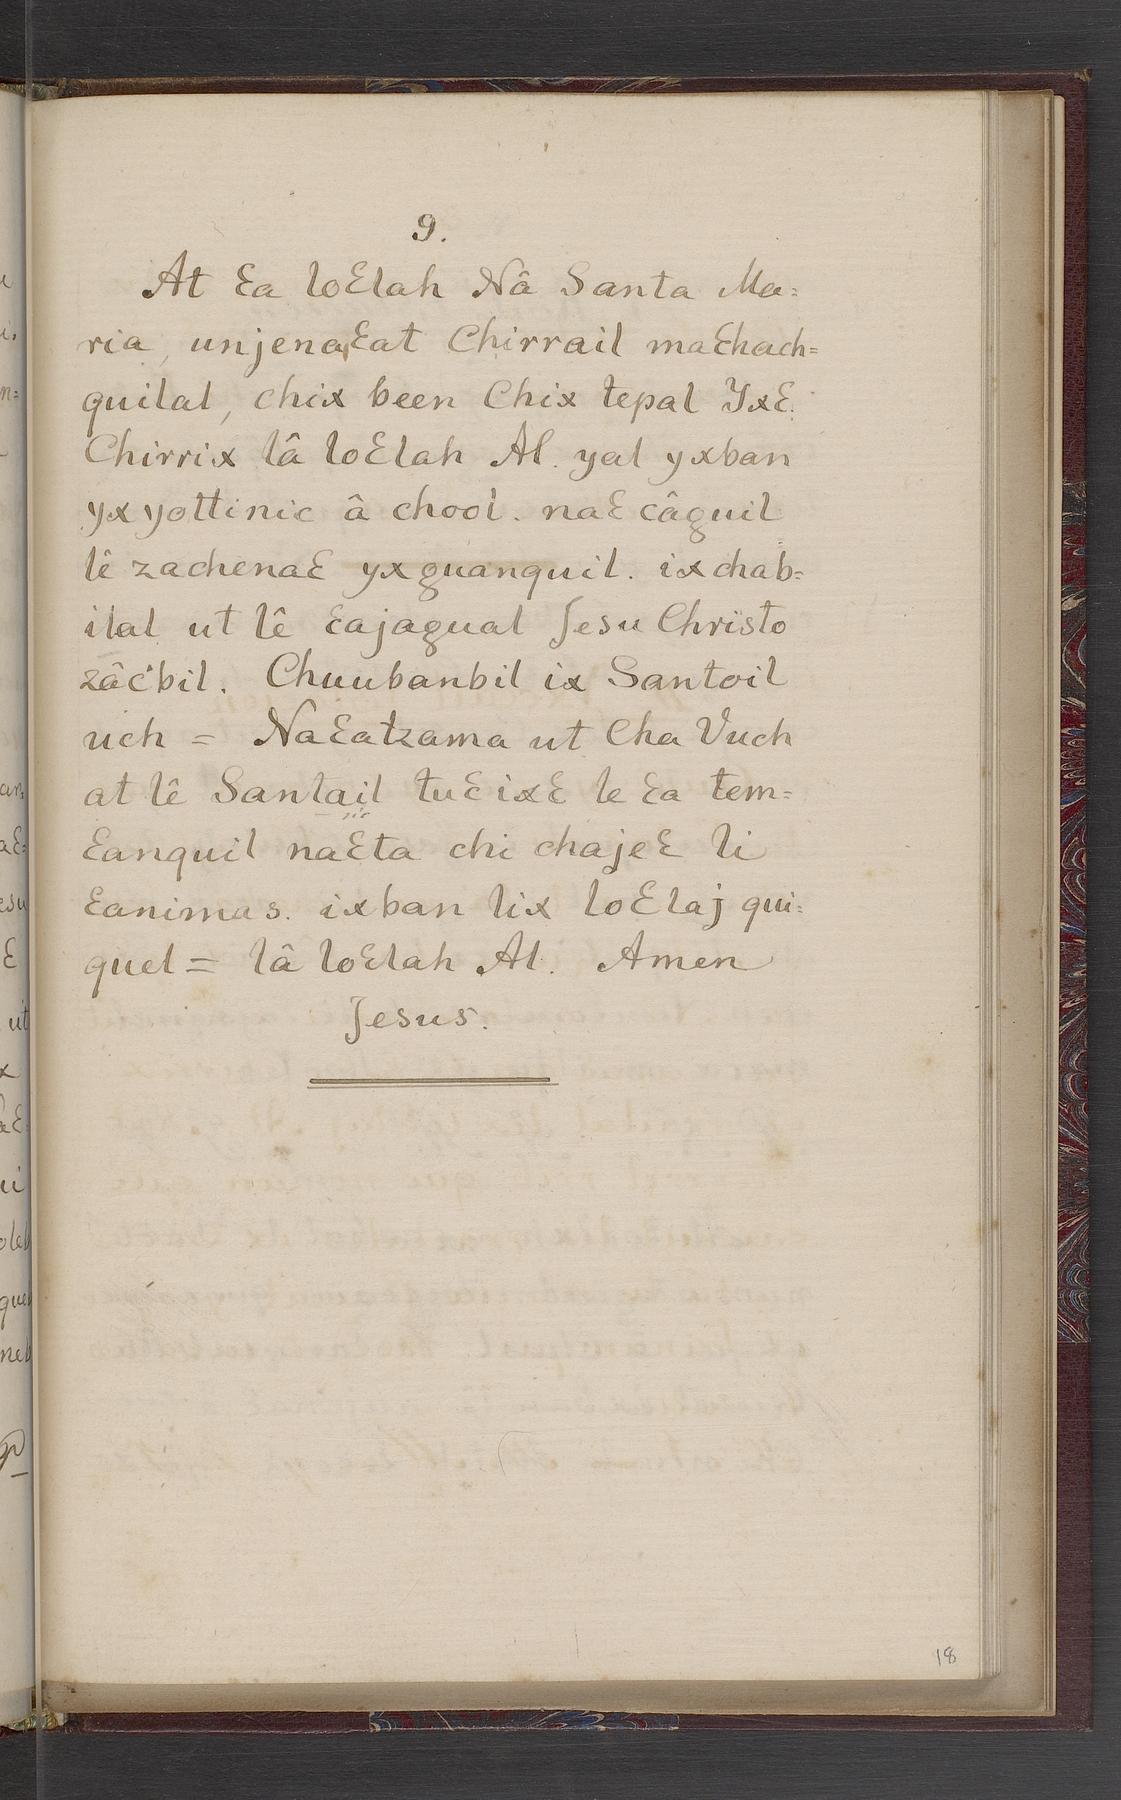 9.
At Ɛa loƐlah Nâ Santa Ma=
ria, unjenaƐat Chirrail maƐhach=
quilal, chix been Chix tepal YxƐ.
Chirrix lâ loƐlah Al. yal yxban
yxyottinic â chool. naƐcâguil
lê zachenaƐ yxguanquil. ixchab=
ilal ut lê Ɛajagual Jesu Christo
zâc'bil. Chuubanbil ix Santoil
uch = NaƐatzama ut Cha Vuch
at lê Santail tuƐixƐ le Ɛa tem=
Ɛanquil naƐta chi chajeƐ li
Ɛanimas. ixban lix loƐlaj qui=
quel = lâ loƐlah Al. Amen
Jesus.
18